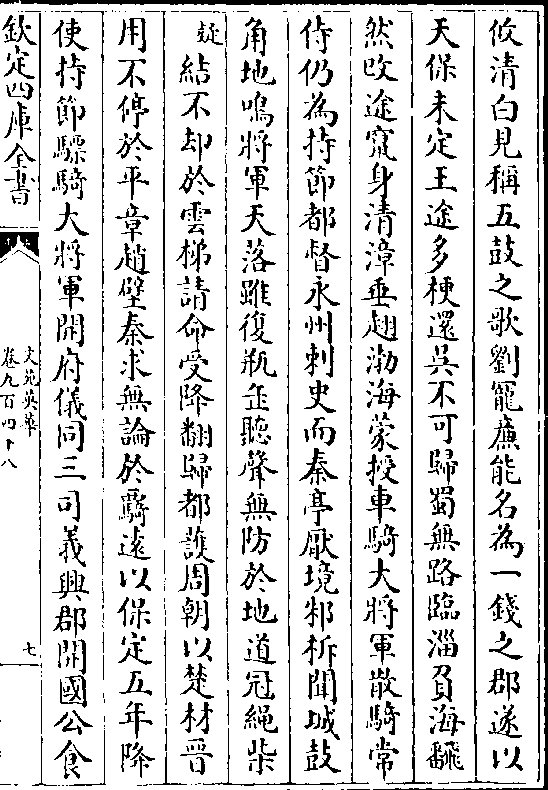 攸清白見稱五鼓之歌劉寵廉能名為一錢之郡遂以
天保未定王途多梗還吳不可歸蜀無路臨淄負海飜
然改途竄身清漳垂翅渤海蒙授車騎大將軍散騎常
侍仍為持節都督永州刺史而秦亭厭境邾柝聞城鼓
角地鳴將軍天落雖復瓶缶聽聲無防於地道冠繩柴
疑結不却於雲梯請命受降翻歸都護周朝以楚材晉
用不停於平章趙璧秦求無論於驕遠以保定五年降
使持節驃騎大將軍開府儀同三司義興郡開國公食
欽定四庫全書
文苑英華
卷九百四十八
七